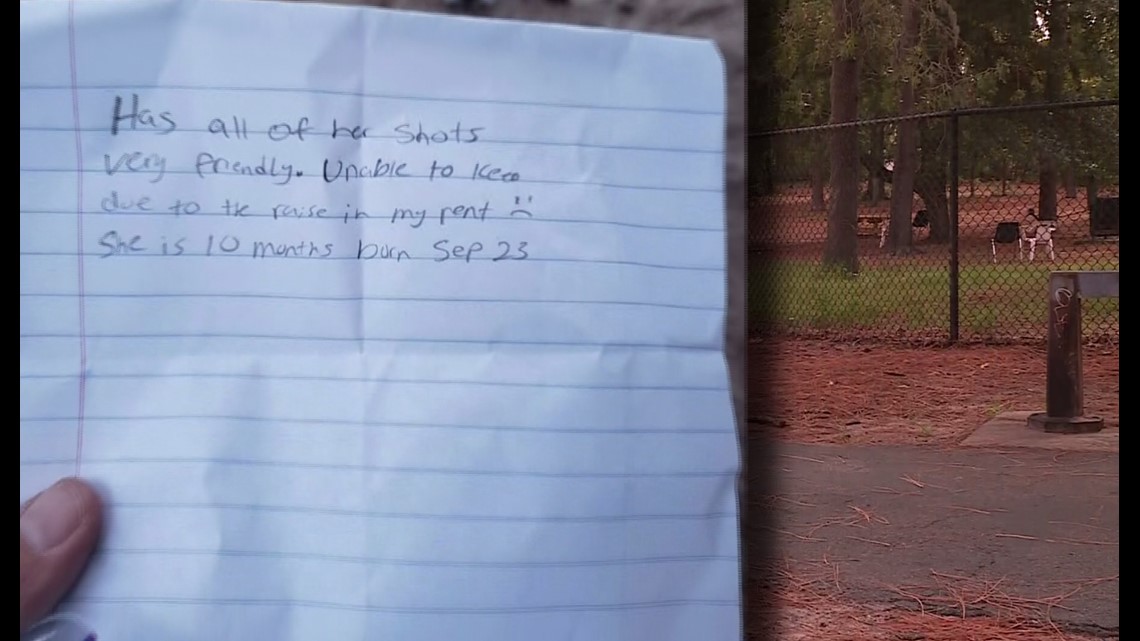 Has all of her shots
very friendly. Unable to keep
due to the raise in my rent
She is 10 months born Sep 23